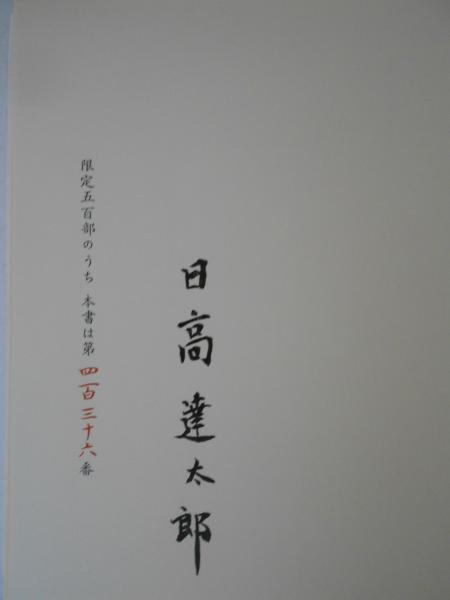 日高達太郎
限定五百部のうち 本書は第四百三十六番